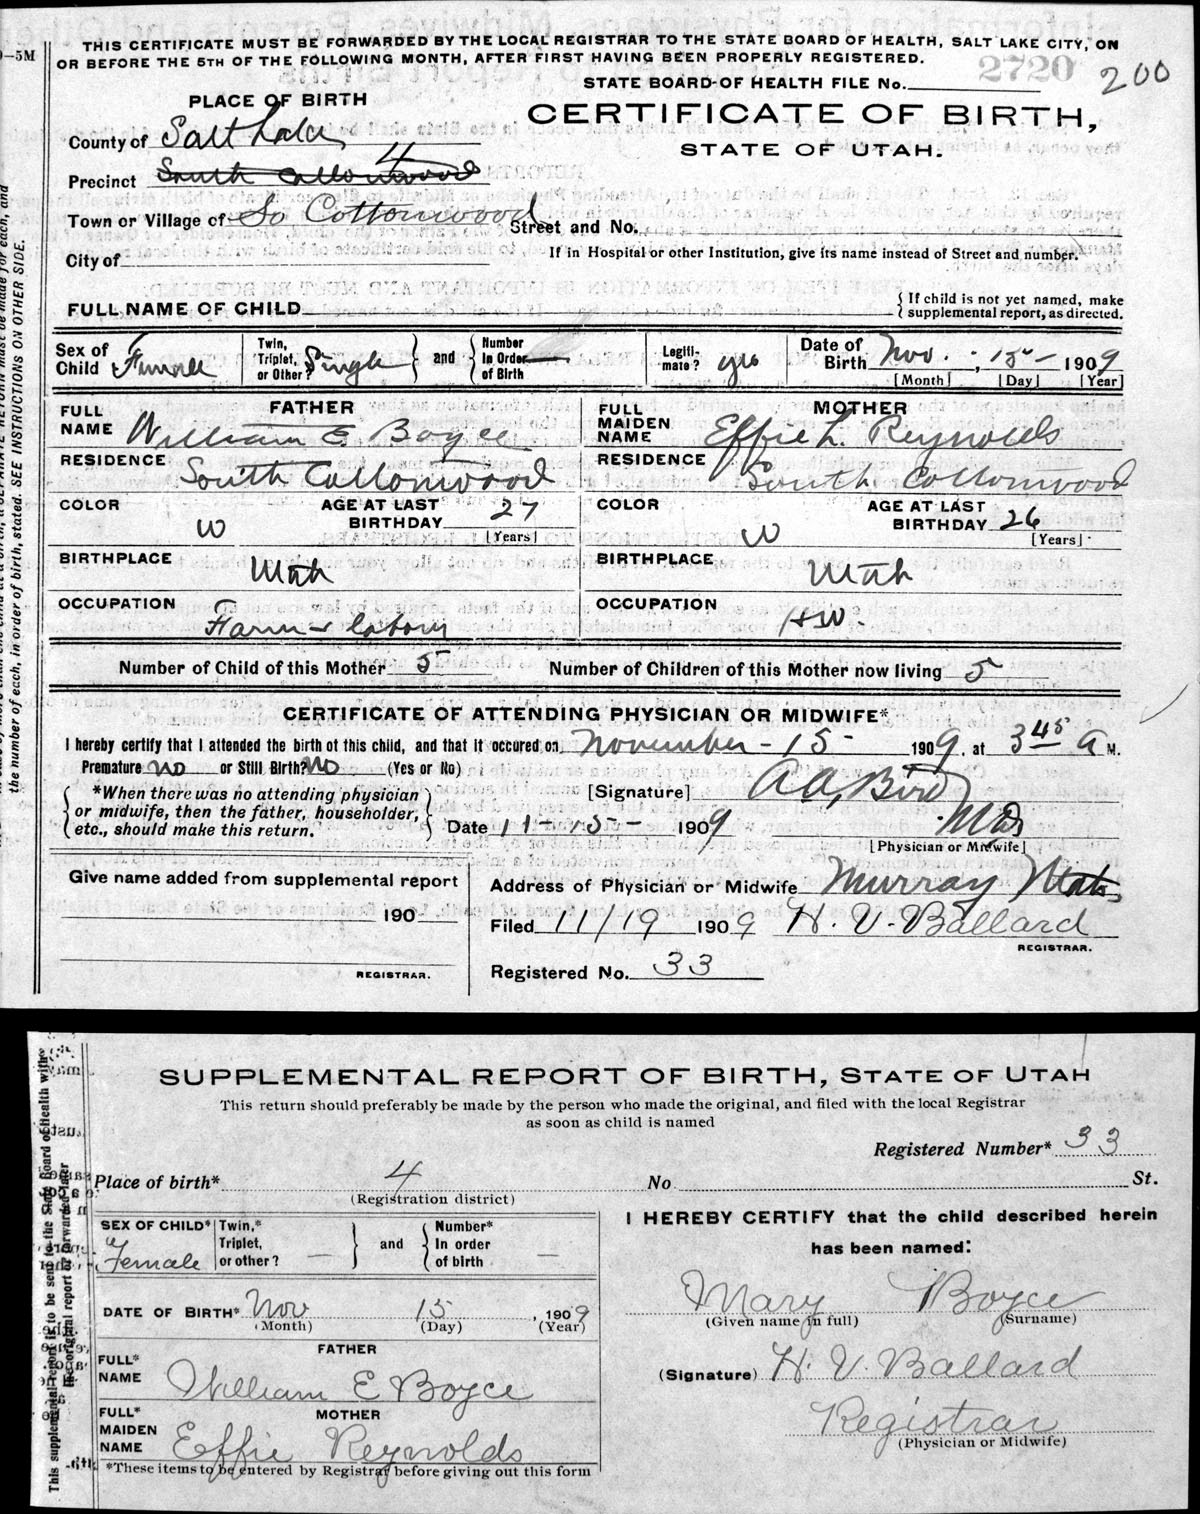 THIS CERTIFICATE MUST BE FORWARDED BY THE LOCAL REGISTRAR TO THE STATE BOARD OF HEALTH, SALT LAKE CITY, ON
OR BEFORE THE 5TH OF THE FOLLOWING MONTH, AFTER FIRST HAVING BEEN PROPERLY REGISTERED.
–5M
2720
200
STATE BOARD OF HEALTH FILE No.
PLACE OF BIRTH
CERTIFICATE OF BIRTH,
STATE OF UTAH.
County of Salt Lake
4
Precinct South Cottonwood
Town or Village of So Cottonwood Street and No.
City of
If in Hospital or other Institution, give its name instead of Street and number.
FULL NAME OF CHILD
{ If child is not yet named, make
supplemental report, as directed.
Sex of Child Female
Twin, Triplet, or Other? Single } and { Number In Order of Birth
Legitimate? yes
Date of Birth Nov. - 15 - 1909
[Month] [Day] [Year]
FATHER
FULL NAME William E Boyce
RESIDENCE South Cottonwood
COLOR W
AGE AT LAST BIRTHDAY 27
[Years]
BIRTHPLACE Utah
OCCUPATION Farm - labour
MOTHER
FULL MAIDEN NAME Effie L. Reynolds
RESIDENCE South Cottonwood
COLOR W
AGE AT LAST BIRTHDAY 26
[Years]
BIRTHPLACE Utah
OCCUPATION HW.
Number of Child of this Mother 5 Number of Children of this Mother now living 5
CERTIFICATE OF ATTENDING PHYSICIAN OR MIDWIFE*
I hereby certify that I attended the birth of this child, and that it occured on November - 15 - 1909. at 3 45 A M.
Premature no or Still Birth? no (Yes or No)
{ *When there was no attending physician
or midwife, then the father, householder,
etc., should make this return. }
[Signature] A A, Bird
Date 11 - 15 - 1909 MD
[Physician or Midwife]
Give name added from supplemental report
190
REGISTRAR.
Address of Physician or Midwife Murray Utah
Filed 11/19 1909 H. V. Ballard
REGISTRAR.
Registered No. 33
the number of each, in order of birth, stated. SEE INSTRUCTIONS ON OTHER SIDE.
SUPPLEMENTAL REPORT OF BIRTH, STATE OF UTAH
This return should preferably be made by the person who made the original, and filed with the local Registrar
as soon as child is named
Registered Number* 33
Place of birth* 4 No St.
(Registration district)
SEX OF CHILD* Female
Twin,* Triplet, or other? — } and { Number* In order of birth —
DATE OF BIRTH* Nov 15, 1909
(Month) (Day) (Year)
FATHER
FULL* NAME William E Boyce
MOTHER
FULL* MAIDEN NAME Effie Reynolds
*These items to be entered by Registrar before giving out this form
I HEREBY CERTIFY that the child described herein
has been named:
Mary Boyce
(Given name in full) (Surname)
(Signature) H. V. Ballard
Registrar
(Physician or Midwife)
This supplemental report is to be sent to the State Board of Health with
the original report or forwarded later